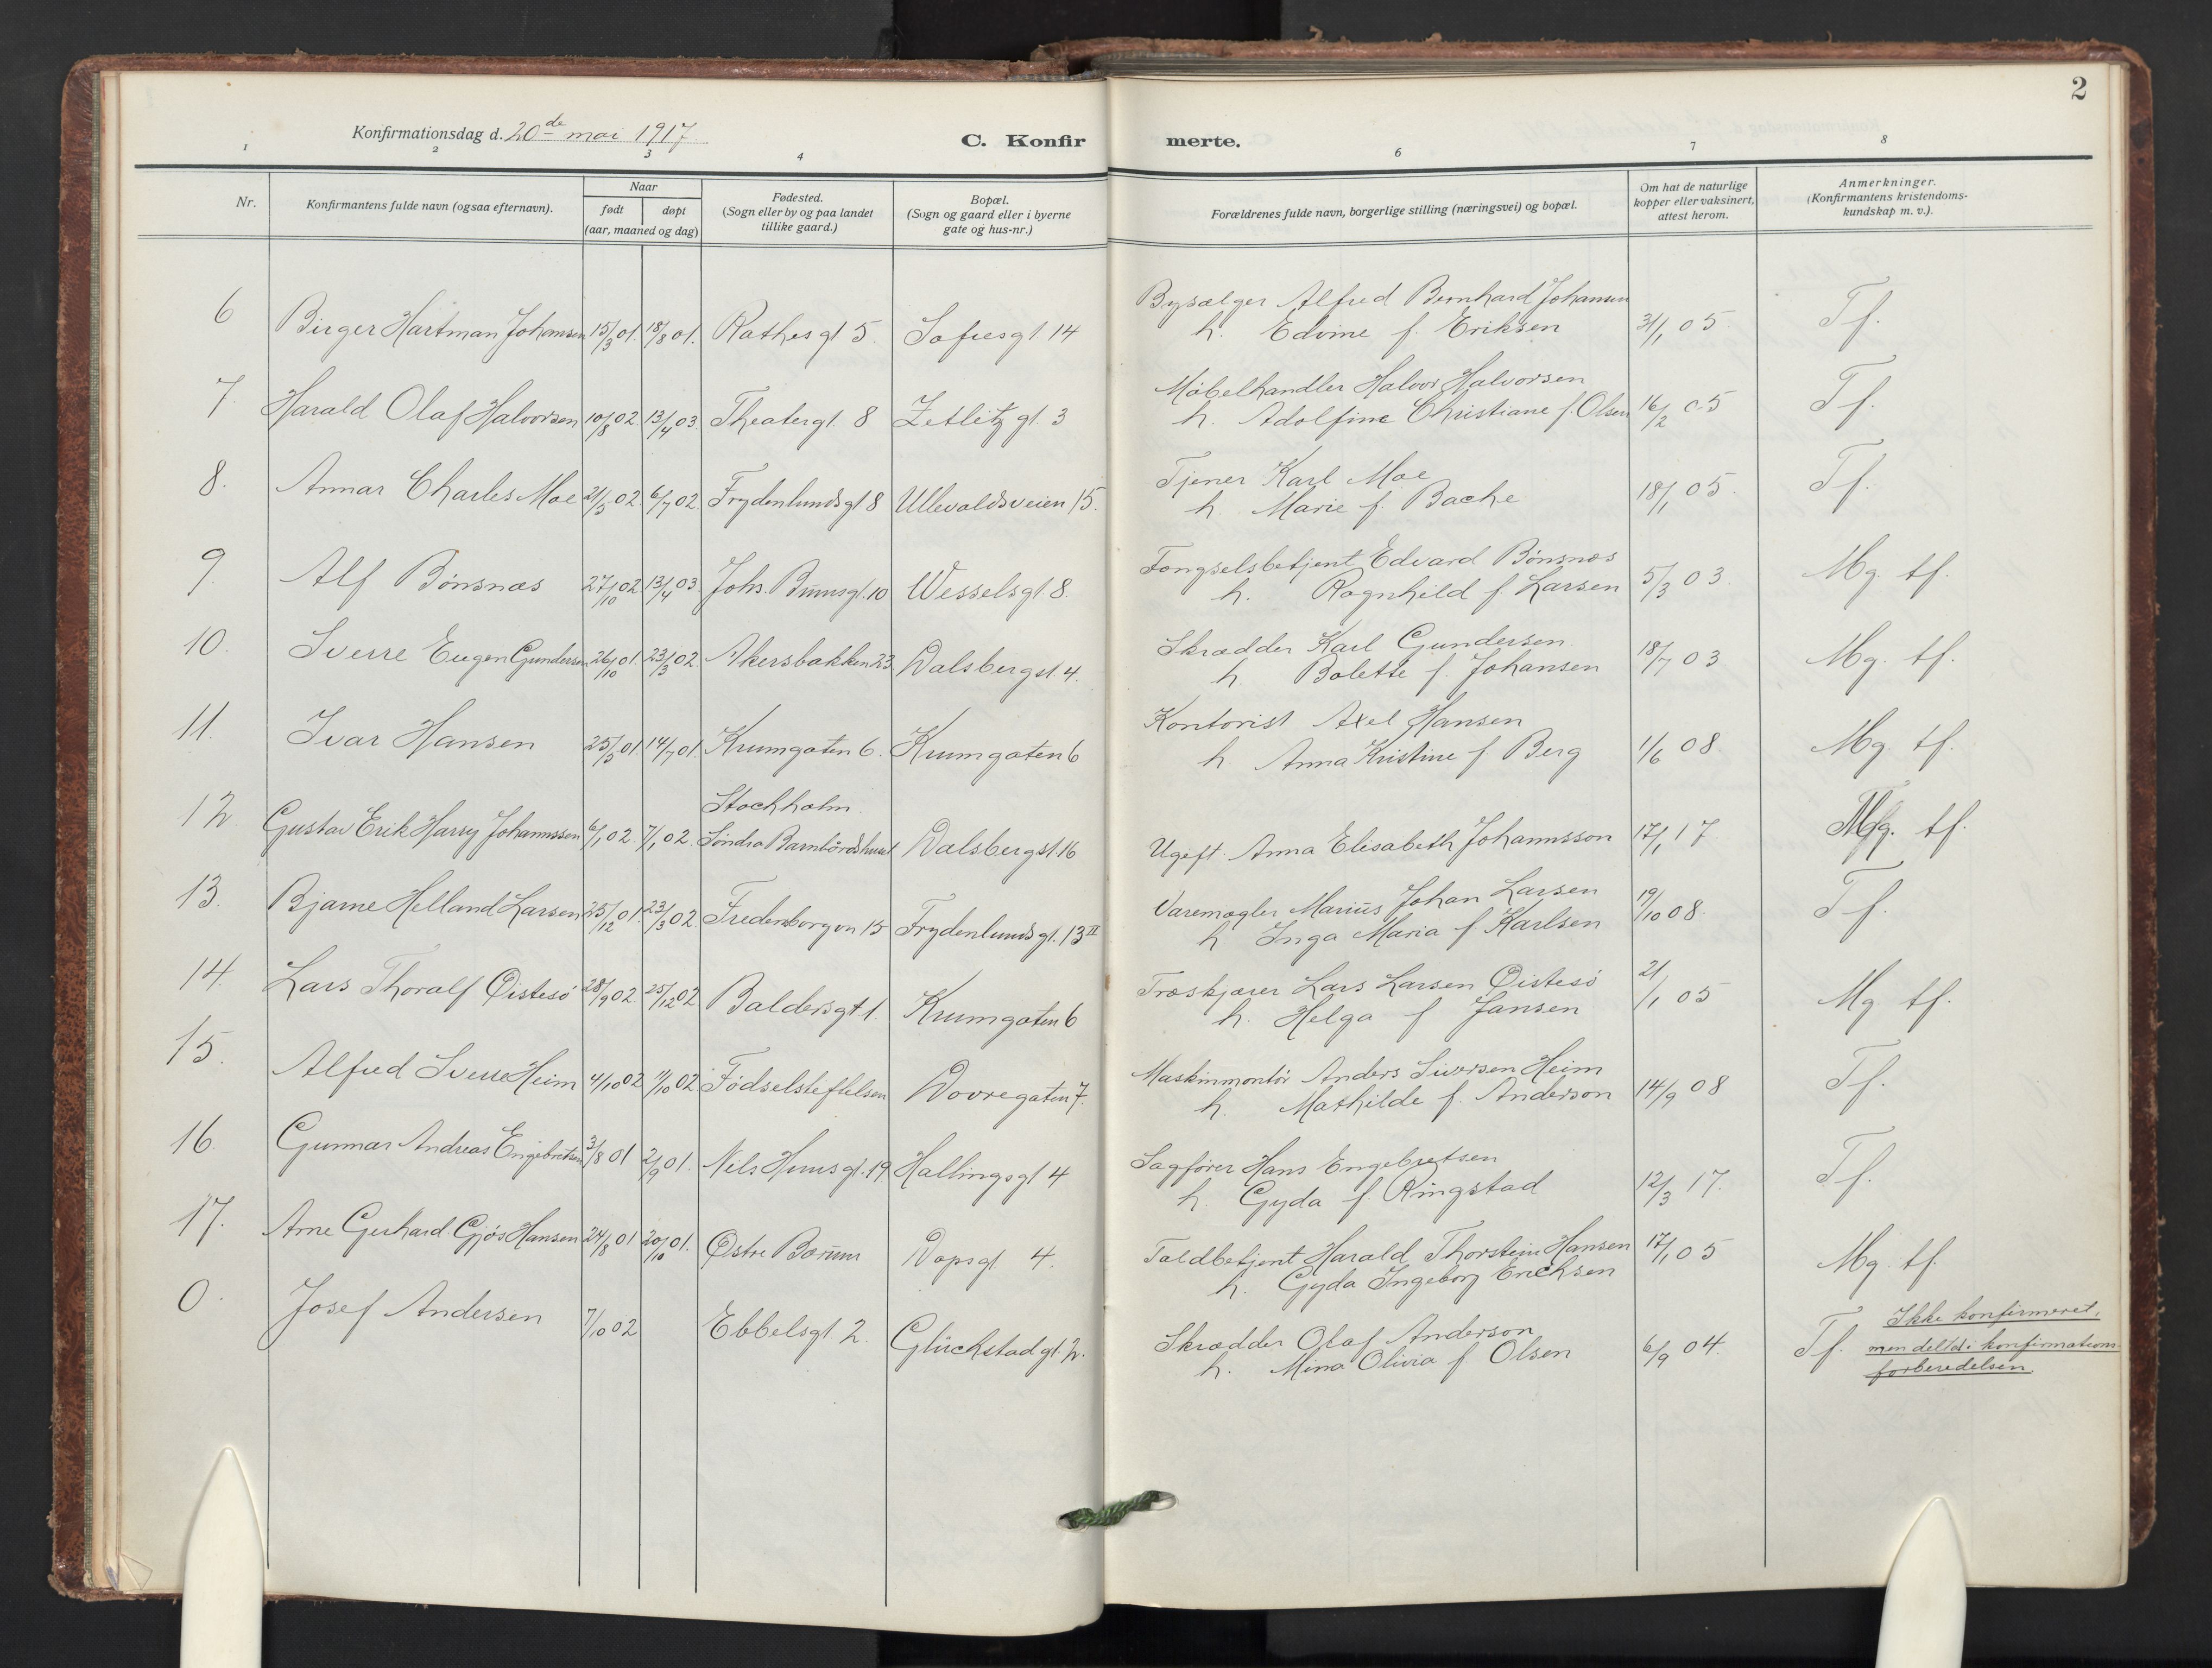 2
Konfirmationsdag d. 20de mai 1917
C. Konfirmerte.
1 2 3 4 6 7 8
Nr.
Konfirmantens fulde navn (ogsaa efternavn).
Naar
født
døpt
(aar, maaned og dag)
Fødested.
(Sogn eller by og paa landet
tillike gaard.)
Bopæl.
(Sogn og gaard eller i byerne
gate og hus-nr.)
Forældrenes fulde navn, borgerlige stilling (næringsvei) og bopæl.
Om hat de naturlige
kopper eller vaksinert,
attest herom.
Anmerkninger.
(Konfirmantens kristendoms-
kundskap m. v.).
6 Birger Hartman Johansen 15/3 01. 18/8 01. Rathesgt 5 Sofiesgt. 14
Bysælger Alfred Bernhard Johansen
h. Edvine f. Eriksen 31/1 05. Tf.
7. Harald Olaf Halvorsen 10/8 02. 13/4 03. Theatergt. 8 Zetlitzgt. 3
Møbelhandler Halvor Halvorsen
h. Adolfine Christiane f. Olsen 16/2 05 Tf.
8. Annar Charles Moe 21/5 02. 6/7 02. Frydenlundsgt 8 Ullevoldsveien 15.
Tjener Karl Moe
h. Marie f. Bache 18/1 05. Tf.
9. Alf Bönsnæs 27/10 02. 13/4 03. Johs. Brunsgt. 10 Wesselsgt. 8.
Fængselsbetjent Edvard Bönsnæs
h. Ragnhild f. Larsen 5/3 03. Mg. tf.
10. Sverre Eugen Gundersen 26/10 01. 23/3 02. Akersbakken 23. Dalsbergst. 4.
Skrædder Karl Gundersen
h. Bolette f. Johansen 18/7 03 Mg. tf.
11. Ivar Hansen 25/5 01. 14/7 01. Krumgaten 6. Krumgaten 6
Kontorist Axel Hansen
h. Anna Kristine f. Berg 1/6 08 Mg. tf.
Stockholm.
12 Gustav Erik Harry Johannssen 6/1 02. 7/1 02. Söndra Barnbördshuset Dalsbergst. 16
Ugift Anna Elisabeth Johannsson 17/1 17 Mg. tf.
13. Bjarne Helland Larsen 25/12 01. 23/3 02. Fredensborgvn 15 Frydenlundsgt. 13 II
Varemægler Marius Johan Larsen
h Inga Maria f Karlsen 19/10 08. Tf.
14. Lars Thoralf Öistesö 28/9 02. 25/12 02 Baldersgt. 1. Krumgaten 6
Træskjærer Lars Larsen Öistesö
h. Helga f Jansen 21/1 05 Mg tf.
15. Alfred Sverre Heim 4/10 02 14/10 02 Födselsstiftelsen Dovregaten 7.
Maskinmontör Anders Siversen Heim
h. Mathilde f. Anderson 14/9 08 Tf.
16. Gunnar Andreas Engebretsen 3/8 01 2/9 01. Nils Huusgt. 19 Hallingsgt 4
Sagfører Hans Engebretsen
h. Gyda f. Ringstad 12/3 17. Tf.
17. Arne Gerhard Gjøs Hansen 24/8 01 20/10 01. Østre Bærum Dopsgt. 4.
Toldbetjent Harald Thorstein Hansen
h. Gyda Ingeborg Erichsen 17/1 05 Mg. tf.
0. Josef Andersen 7/10 02 Ebbelsgt. 2. Glückstadgt. 2.
Skrædder Olaf Anderson
h. Mina Olivia f Olsen 6/9 04. Tf.
Ikke konfirmeret,
men deltd i konfirmations-
forberedelsen.